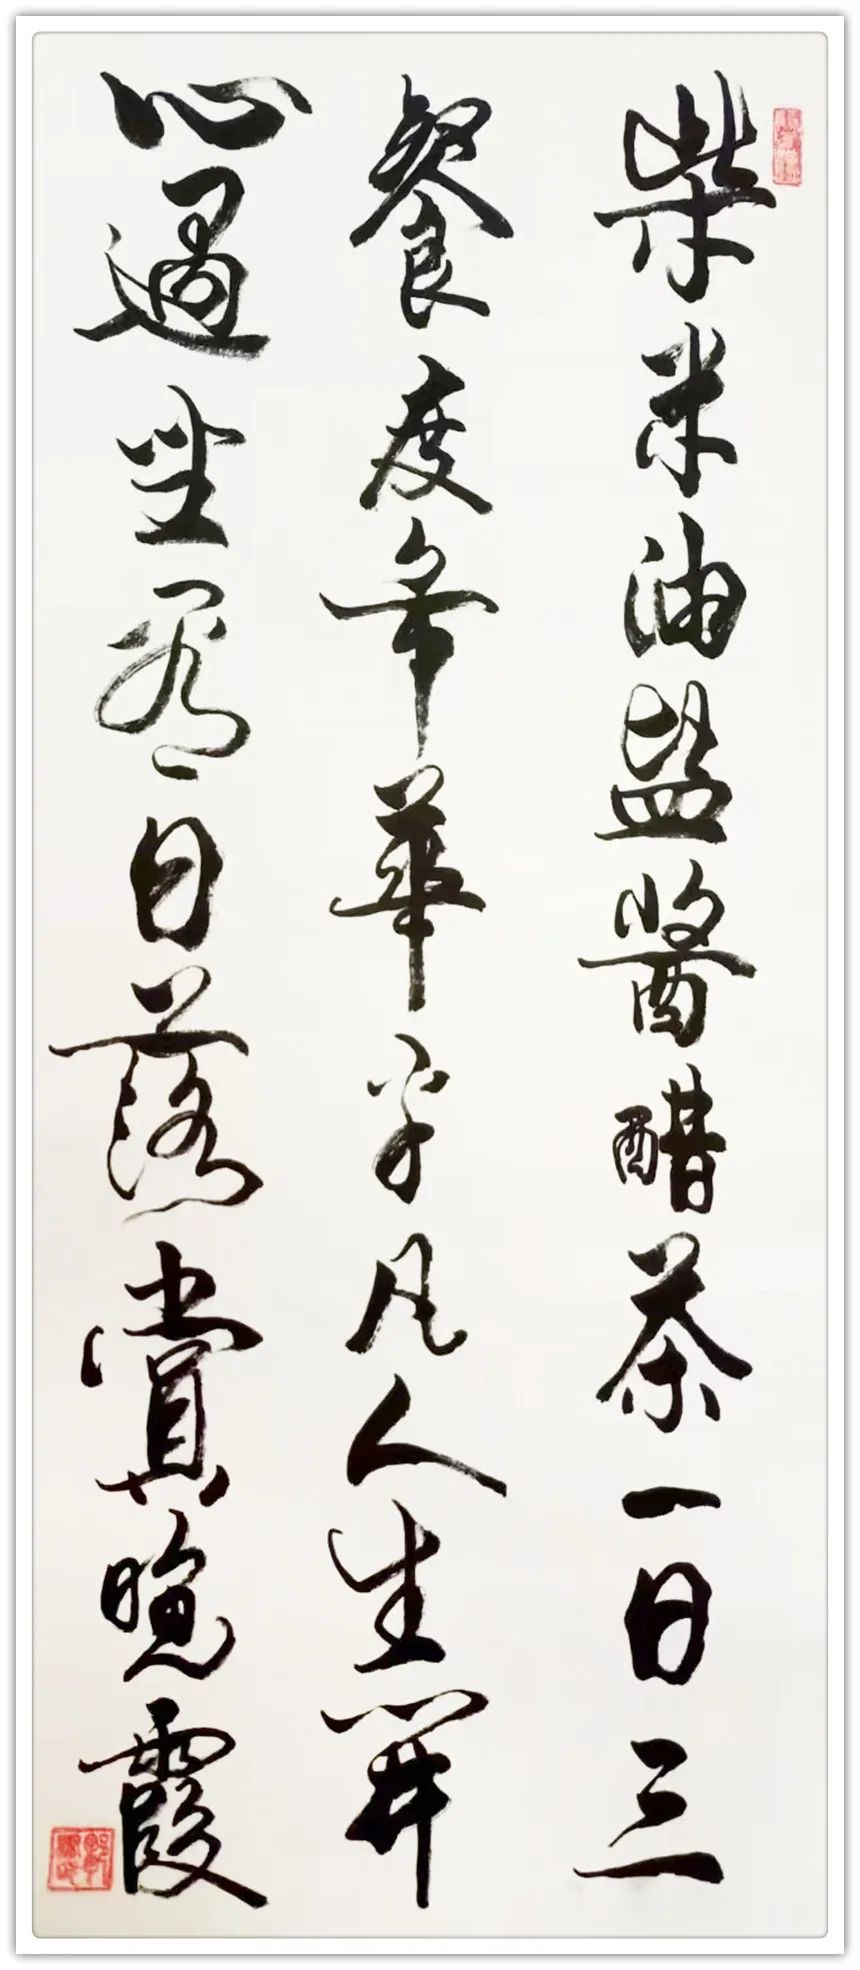 柴米油盐醬醋茶一日三
餐度年華平凡人生開
心過坐看日落賞晚霞